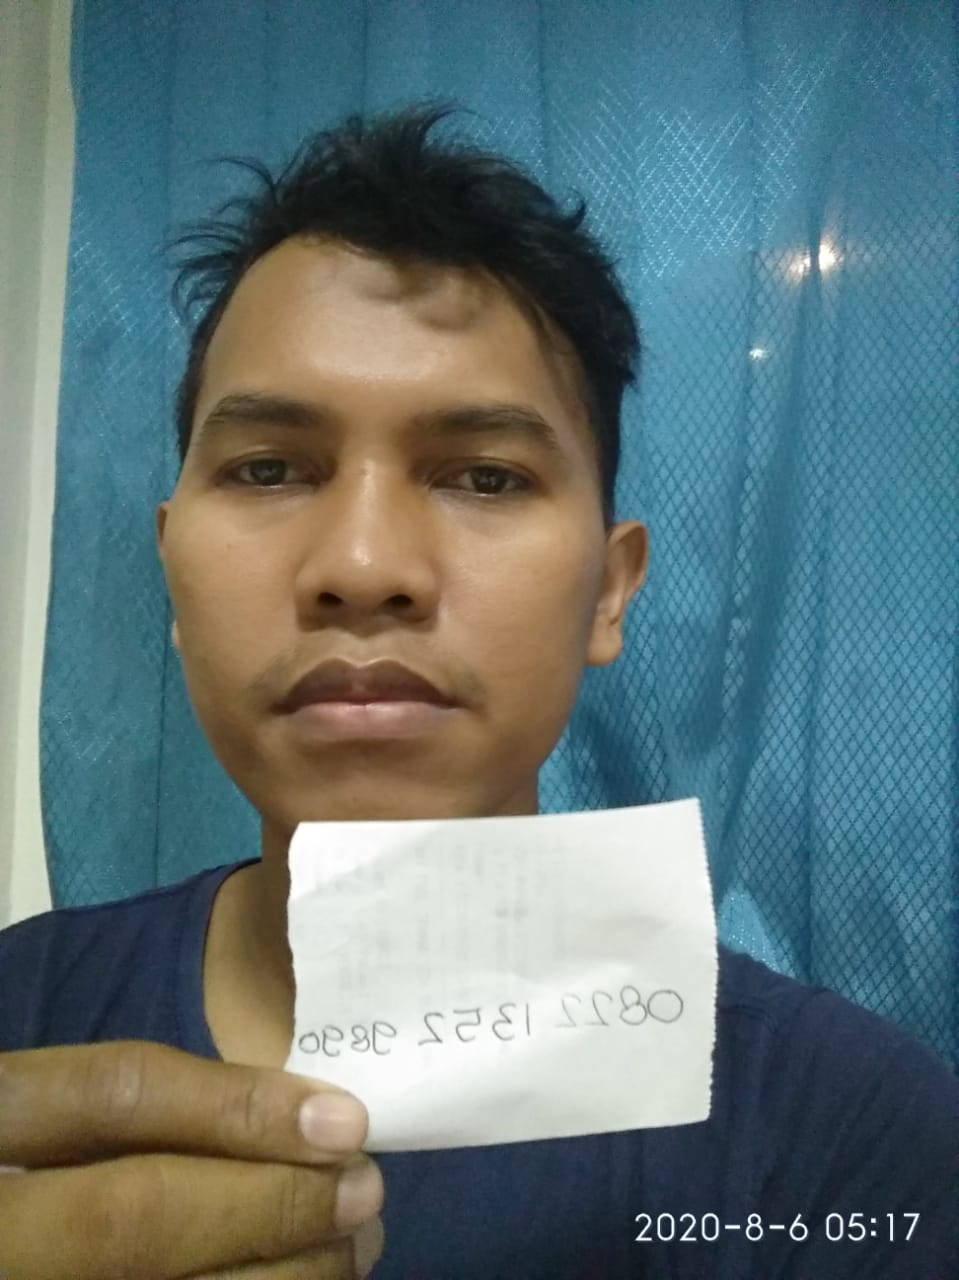 0822 1352 9890
2020-8-6 05:17